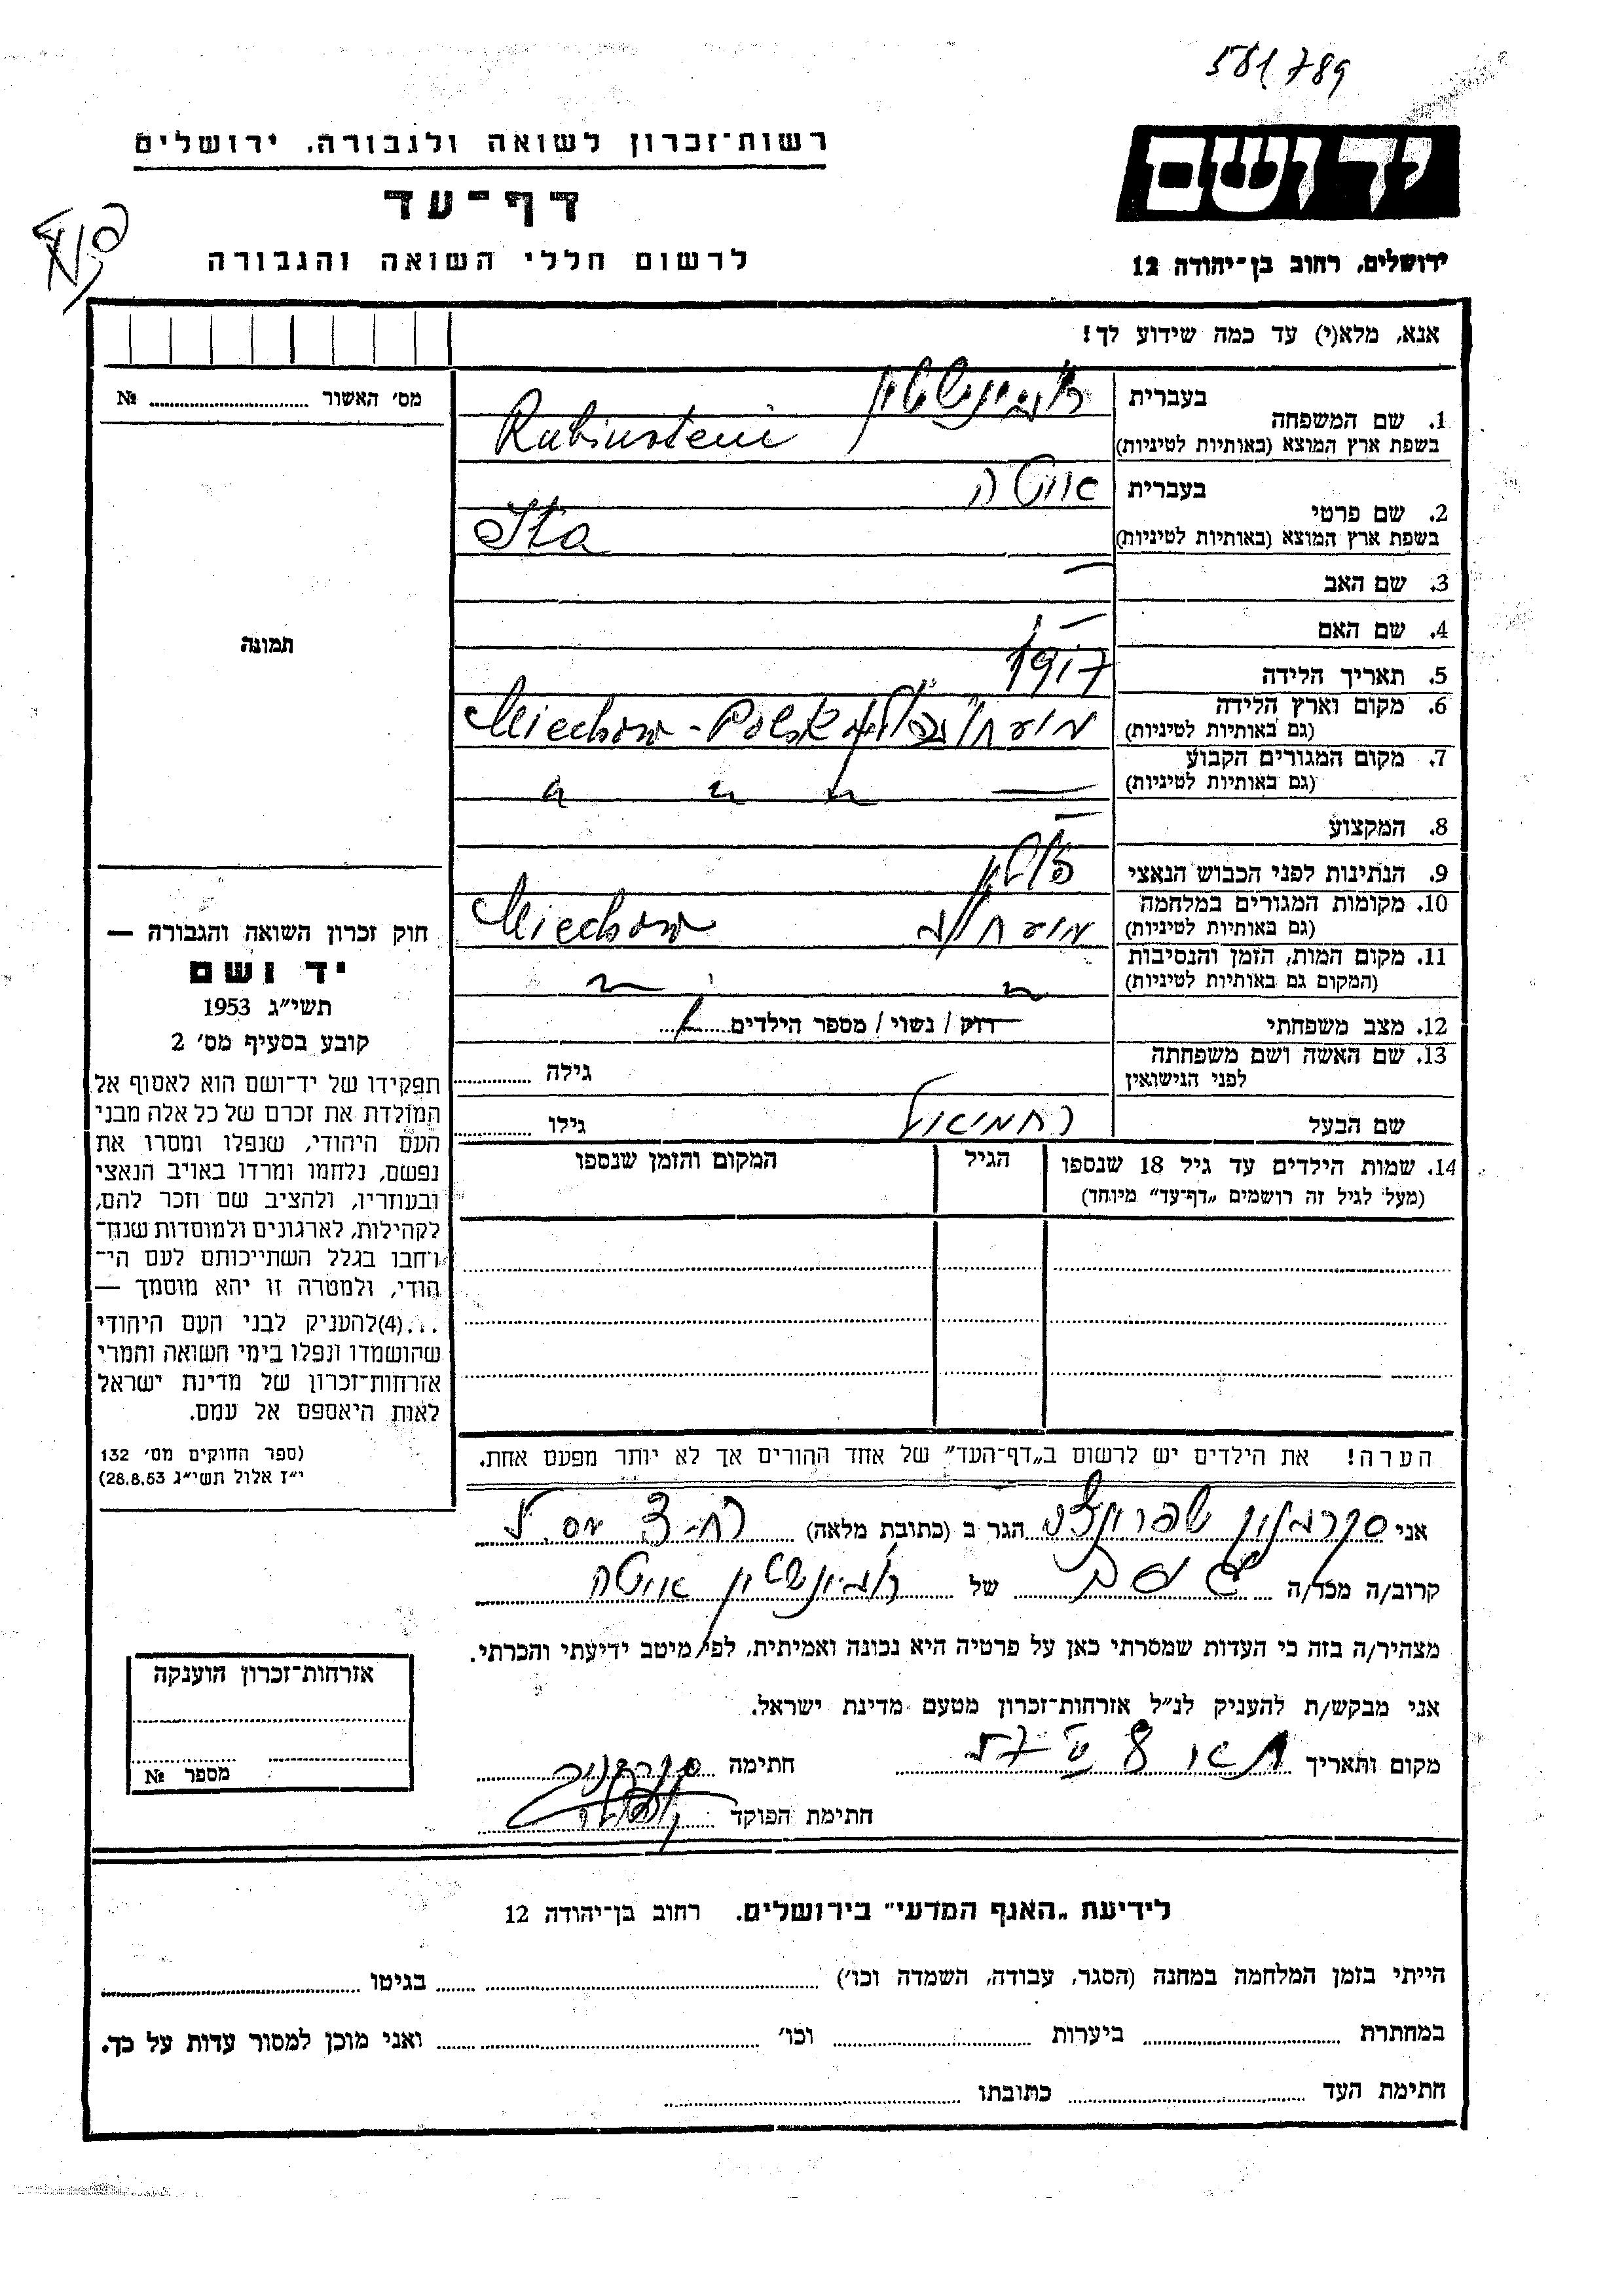 581789
יד ושם
רשות־זכרון לשואה ולגבורה, ירושלים
דף־עד
לרשום חללי השואה והגבורה
ירושלים, רחוב בן־יהודה 12
אנא, מלא(י) עד כמה שידוע לך!
מס׳ האשור № ....................
1. שם המשפחה בעברית רובינשטיין
בשפת ארץ המוצא (באותיות לטיניות) Rubinstein
2. שם פרטי בעברית איטה
בשפת ארץ המוצא (באותיות לטיניות) Ita
3. שם האב —
4. שם האם —
תמונה
5. תאריך הלידה 1917
6. מקום וארץ הלידה
(גם באותיות לטיניות) Miechow - Polska
7. מקום המגורים הקבוע
(גם באותיות לטיניות) — " " "
8. המקצוע —
9. הנתינות לפני הכבוש הנאצי
10. מקומות המגורים במלחמה
(גם באותיות לטיניות) Miechow
11. מקום המות, הזמן והנסיבות
(המקום גם באותיות לטיניות) " "
12. מצב משפחתי רווק / נשוי / מספר הילדים
13. שם האשה ושם משפחתה
לפני הנישואין
גילה
שם הבעל ירחמיאל
גילו
14. שמות הילדים עד גיל 18 שנספו
(מעל לגיל זה רושמים „דף־עד״ מיוחד)
הגיל
המקום והזמן שנספו
הערה! את הילדים יש לרשום ב„דף־העד״ של אחד ההורים אך לא יותר מפעם אחת.
חוק זכרון השואה והגבורה —
יד ושם
תשי״ג 1953
קובע בסעיף מס׳ 2
תפקידו של יד־ושם הוא לאסוף אל
המולדת את זכרם של כל אלה מבני
העם היהודי, שנפלו ומסרו את
נפשם, נלחמו ומרדו באויב הנאצי
ובעוזריו, ולהציב שם וזכר להם,
לקהילות, לארגונים ולמוסדות שנח־
רחבו בגלל השתייכותם לעם הי־
הודי, ולמטרה זו יהא מוסמך —
...(4)להעניק לבני העם היהודי
שהושמדו ונפלו בימי השואה והמרי
אזרחות־זכרון של מדינת ישראל
לאות היאספם אל עמם.
(ספר החוקים מס׳ 132
י״ז אלול תשי״ג 28.8.53)
אני הגר ב (כתובת מלאה)
קרוב/ה מכר/ה של רובינשטיין איטה
מצהיר/ה בזה כי העדות שמסרתי כאן על פרטיה היא נכונה ואמיתית, לפי מיטב ידיעתי והכרתי.
אני מבקש/ת להעניק לנ״ל אזרחות־זכרון מטעם מדינת ישראל.
מקום ותאריך חתימה
חתימת הפוקד
אזרחות־זכרון הוענקה
מספר №
לידיעת „האגף המדעי״ בירושלים. רחוב בן־יהודה 12
הייתי בזמן המלחמה במחנה (הסגר, עבודה, השמדה וכו׳) בגיטו
במחתרת ביערות וכו׳ ואני מוכן למסור עדות על כך.
חתימת העד כתובתו